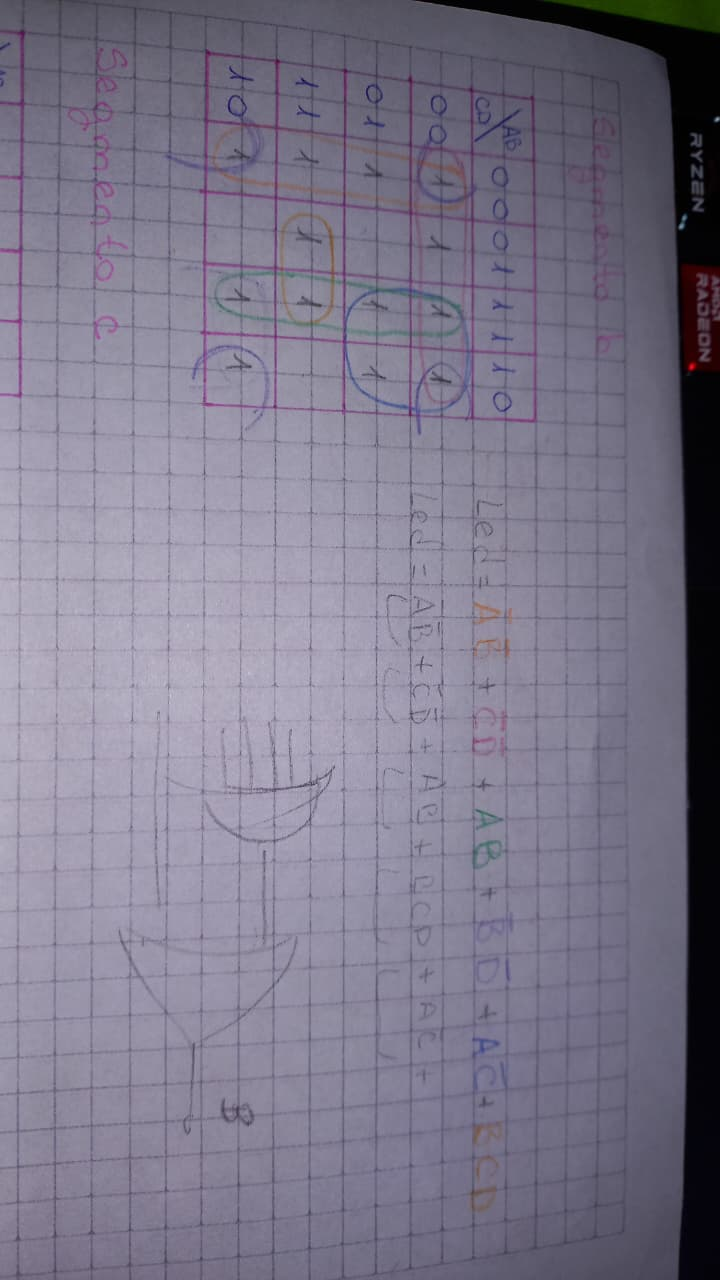 RYZEN
RADEON
Segmento b
CD\AB 00 01 11 10
00 1 1 1 1
01 1 1 1
11 1 1 1
10 1 1 1
Led = A̅B̅ + C̅D̅ + AB + B̅D̅ + AC̅ + BCD
Led = A̅B̅ + C̅D̅ + AB + BCD + AC̅ +
B
Segmento c